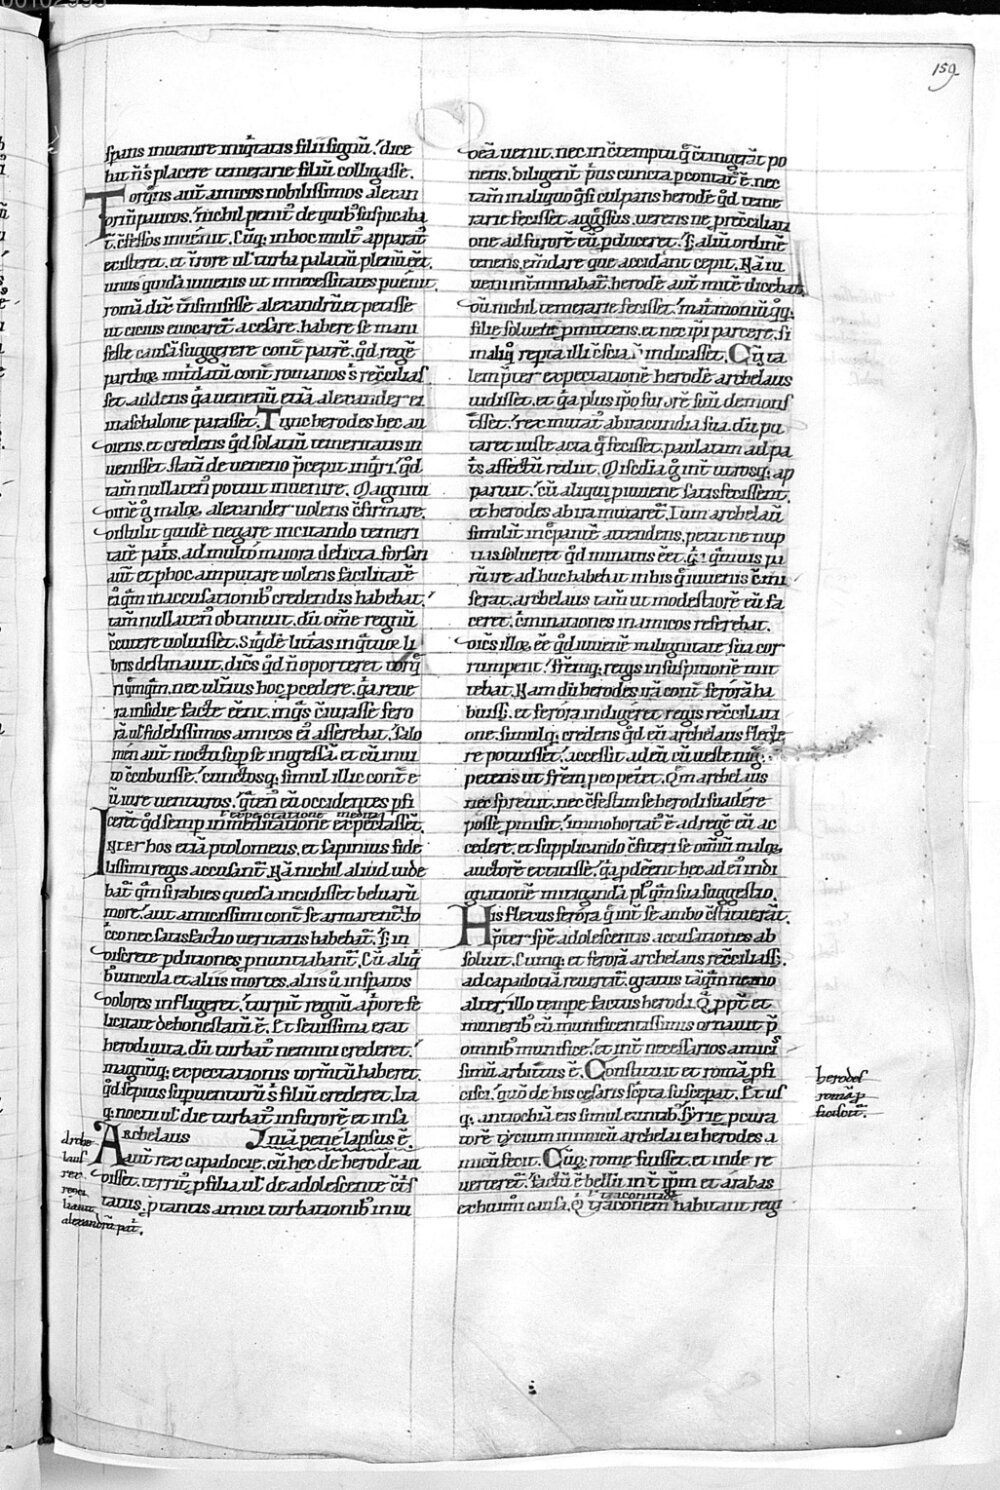 159
spans inuenire miq̄tatis filii signū. dice
bat n̄ s̄ placere temerarie filiū colligasse.
Torq̄ns aut̄ amicos nobilissimos alexan
dri n̄ paucos. nichil penit᷒ de quib᷒ suspicaba
t̄. c̄fessos inuenit. Cūq; in hoc mult᷒ apparat᷒
existeret. et t̄rore ul̄ turba palatiū plenū eēt.
unus quidā iuuenis ut in necessitates puenit.
romā dic̄ t̄nsmisisse alexandrū et petisse
ut cicius euocaret̄ a cesare. habere se mani
festē causā suggerere cont̄ patrē. qd̄ regē
parthoꝝ mitridatū cont̄ romanos s̄ recc̄ilias
set. addens q̄a uenenū etiā alexander ei
in aschalone parasset. Tunc herodes hec au
diens. et credens qd̄ solatiū temeritatis in
uenisset statī de ueneno p̄cepit inq̄ri. qd̄
tam̄ nullaten᷒ potuit inuenire. Magnitu
dinē g̊ maloꝝ alexander uolens c̄firmare.
distulit quidē negare incitando temeri
tatē pat̄s. ad multo maiora delicta forsan
aut̄ et p hoc amputare uolens facilitatē
ei q̄m in accusationib᷒ credendis habebat.
tam̄ nullaten᷒ obtinuit. dū om̄e regnū
c̄cutere uoluisset. Siq̄dē litt̄as in q̄tuor li
bris destinauit. dic̄s qd̄ n̄ oporteret torq̄
ri q̄mq̄m. nec ult̄ius hoc pcedere. q̄a reue
ra insidie facte eēnt. in q̄s c̄iurasse fero
rā ul̄ fidelissimos amicos ei᷒ asserebat. Salo
mēn aut̄ noctu sup se ingressā. et cū inui
to c̄cubuisse. cunctosq; simul illic cont̄ e
ū iure uenturos. q̄ten᷒ eū occidentes pfi
expectatione meditat
cerēt qd̄ semp in meditatione expectassēt.
Inter hos etiā ptolomeus. et sapinius fide
lissimi regis accusant̄. Nā nichil aliud uide
bat̄ q̄m si rabies quedā incidisset beluarū
more. aut amicissimi cont̄ se armarent̄. lo
c̄co nec satisfactio ueritatis habebat̄. s̄ in
discrete pditiones pnuntiabant̄. Cū aliq̄
b᷒ uincula et aliis mortes. aliis ū insparos
dolores infligeret. turpit̄ regnū a p̄ore fe
licitate dehonestatū ē. Et seuissima erat
herodi uita. dū turbat᷒ nemini crederet.
magnūq; expectationis tormtū haberet.
qd̄ sepius supuenturū s̄ filiū crederet. Ita
q; noctu ul̄ die turbat᷒ in furorē et insa
Archelaus   niā pene lapsus ē.
aut̄ rex capadocie. cū hec de herode au
disset. territ᷒ p filia ul̄ de adolescente c̄t̄s
tatus. p tantis amici turbationib᷒ in iu
deā uenit. nec in c̄temptu q̄ c̄tingerāt po
nens. diligent̄ p̄us cuncta pcontat᷒ ē. nec
tam̄ in aliquo q̄si culpans herodē qd̄ teme
rarie fecisset aggssus. uerens ne p recc̄iliati
onē ad furorē eū pduceret. s̄ aliū ordinē
tenens. em̄dare que accidant cepit. Nā iu
ueni int̄minabat̄. herodē aut̄ mitē dicebat.
dū nichil temerarie fecisset. matrimoniū qq;
filie soluere pmittens. et nec ip̄i parcere. si
in aliq̊ repta illi c̄scia. n̄ indicasset. Cūq; ta
lem p̄ter expectationē herodē archelaus
uidisset. et q̄a plus ip̄o furorē suū demons
t̄sset. rex mutat᷒ ab iracundia sua. dū pu
taret iuste acta q̄ fecisset. paulatim ad pa
t̄s affectū rediit. Miscdia g̊ int̄ utrosq; ap
paruit. cū aliqui p iuuene satisfecissent.
et herodes ab ira mutaret̄. Tum archelaū
similit̄ increpante attendens. petiit ne nup
tias solueret qd̄ minatus eēt. q; q̄muis pu
rū ire ad huc habebat in his q̄ iuuenis c̄mi
serat. archelaus tam̄ ut modestiorē eū fa
ceret. c̄minationes in amicos referebat.
dic̄s illoꝝ eē qd̄ iuuenē malignitate sua cor
rumpent. fr̄emq; regis in suspitionē mit
tebat. Nam dū herodes irā cont̄ ferorā ha
buiss̄. et ferora indigeret regis recc̄iliati
one. simulq; credens qd̄ eū archelaus flecte
re potuisset. accessit ad eū cū ueste nig̊.
petens ut fr̄em p eo peteret. Qm̄ archelaus
nec spreuit. nec c̄festim se herodi suadere
posse pmisit. immo hortat᷒ ē ad regē eū ac
cedere. et supplicando c̄fiteri se om̄iū maloꝝ
auctorē extitisse. q̄a pdeēnt hec ad ei᷒ indi
gnationē mitigandā pl᷒ q̄m sua suggestio.
His flexus ferora q̄ int̄ se ambo c̄stituerāt.
p̄ter spē adolescentis accusationes ab
soluit. Cuinq; et ferorā archelaus recc̄iliass̄.
ad capadotiā reuertit̄. gratus tāq̄m nemo
alter illo tempe factus herodi. Q̊ ppt̄ et
munerib᷒ eū munificentissimis ornauit p̄
omnib᷒ munifice. et int̄ necessarios amicis
simū arbitratus ē. Constituit et romā pfi
cisci. quō de his cesaris sc̄pta suscepat. Et us
q; antiochiā eis simul euntib᷒ syrie pcura
torē tytium inimicū archelai ei herodes a
micū fecit. Cūq; rome fuisset. et inde re
uerteret̄. factū ē bellū int̄ ip̄m et arabas
traconitidē
ex huius causa. Q̊ traconem habitant regi
arche
laus
rex
reci
liauit
alexandrū pat̄.
herodes
romā p
ficiscit̄.